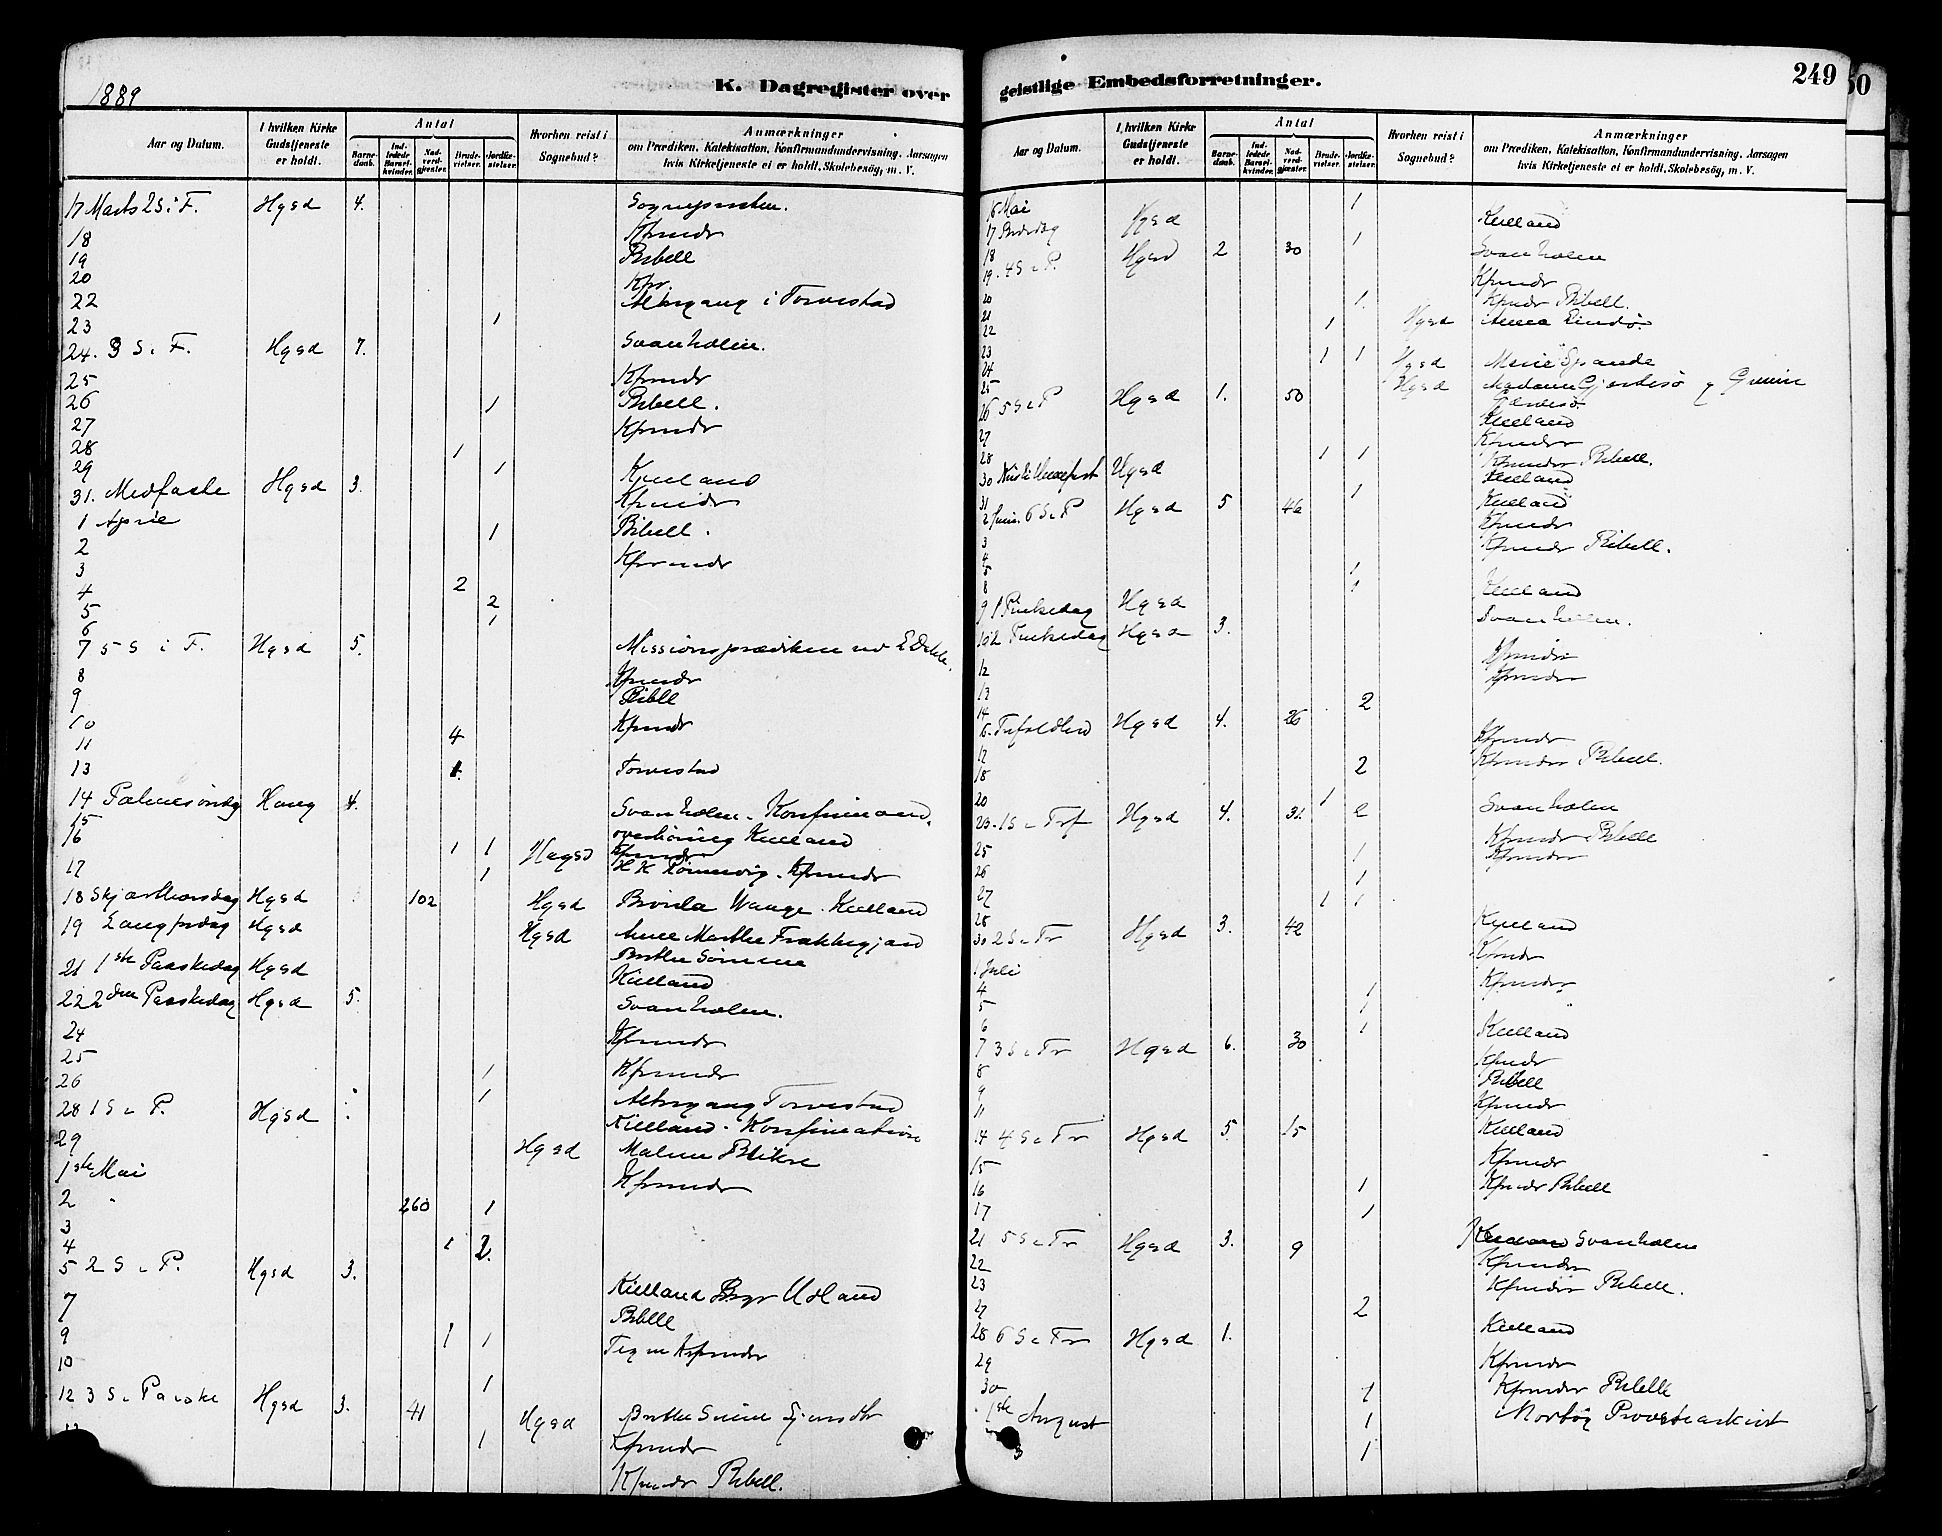 1889
K. Dagregister over
Aar og Datum.
I hvilken Kirke Gudstjeneste er holdt.
Antal
Barnedaab.
Indledede Barselkvinder.
Nadverdgjester.
Brudevielser.
Jordfæstelser.
Hvorhen reist i Sognebud?
Anmærkninger
om Prædiken, Katekisation, Konfirmandundervisning, Aarsagen
hvis Kirketjeneste ei er holdt, Skolebesög, m. V.
17 Marts 2 S. i F. Hgsd 4.
18 Kfrmdr
19 Bibell
20 Kfr.
22 Altergang i Torvestad
23 1
24. 3 S. i F. Hgsd 7. Svanholm.
25 Kfrmdr
26 1 Bibell.
27 Kfrmdr
28 1
29 1
31. Medfaste Hgsd 3. Kielland
1 April Kfrmdr
2 1 Bibell.
3 Kfrmdr
4 2
5 2
6 1
7 5 S i F. Hgsd 5. Missionsprædiken
8 Kfrmdr
9 Bibell
10 Kfrmdr
11 4
13 1. Torvestad
14 Palmesöndg Haug 4. Svanholm. Konfirmand.
15 overhöring Kielland
16 1 1 Hagsd Kfrmdr
17 1 Kfrmdr
18 Skjærthorsdag Hgsd 102 Hgsd Waage. Kielland
19 Langfrdag Hgsd Hgsd
21 1ste Paaskedag Hgsd Kielland
22 2den Paaskedag Hgsd 5. Svanholm.
24 Kfrmdr
25 1 Kfrmdr
26 1 Altergang Torvestad
28 1 S. P. Hgsd Kielland - Konfirmation
29 Hgsd
1ste Mai Kfrmdr
2 260 1
3
4 1 2.
5 2 S. P. Hgsd 3. Kielland
7 Bibell
9 1 1
10 1
12 3 S. Paaske Hgsd 3. 41 Hgsd
1 Kfrmdr
Kfrmdr Bibell.
geistlige Embedsforretninger.
249
50
Aar og Datum.
I hvilken Kirke Gudstjeneste er holdt.
Antal
Barnedaab.
Indledede Barselkvinder.
Nadverdgjester.
Brudevielser.
Jordfæstelser.
Hvorhen reist i Sognebud?
Anmærkninger
om Prædiken, Katekisation, Konfirmandundervisning, Aarsagen
hvis Kirketjeneste ei er holdt, Skolebesög, m. V.
16 Mai 1
17 Bededag Hgsd Kielland
18 1
19. 4 S. P. Hgsd 2 30 Svanholm
20 Kfrmdr
21 1 Kfrmdr Bibell.
22 1 Hgsd Anna
23 1 1 Hgsd Marie
24
25 Hgsd Madame
26 5 S. P Hgsd 1. 50 Kielland
27 Kfrmdr
28 1 1 Kfrmdr Bibell.
30 Hgsd Kielland
31 1
2 Juni. 6 S. P Hgsd 5 46 Kielland
3 Kfrmdr
4 Kfrmdr Bibell.
5 1
8 1
9 1 Pintsedag Hgsd Kielland
10 2 Pintsedag Hgsd 3. Svanholm.
12 Kfrmdr
13 Kfrmdr
14 2
16. Trefoldhed Hgsd 4. 26
17 Kfrmdr
18 2 Kfrmdr Bibell.
20 1
23. 1 S. Trf Hgsd 4. 31. Svanholm
25 1 Kfrmdr Bibell
26 1 Kfrmdr
27 1 1
28
30 2 S. Tr Hgsd 3. 42 Kielland
1 Juli Kfrmdr
4 1 Kfrmdr
5 1
6 1
7 3 S. Tr Hgsd 6. 30 Kielland
8 Kfrmdr
9 Bibell
11 Kfrmdr
14 4 S. Tr Hgsd 5. 15 Kielland
15 Kfrmdr
16 1 Kfrmdr Bibell
17 1
21 5 S. Tr Hgsd 3. 9 Svanholm
22 Kfrmdr
23 Kfrmdr Bibell.
27 2
28 6 S. Tr Hgsd 1. Kielland
29 Kfrmdr
30 1 Kfrmdr Bibelle
1ste August 1
3 1